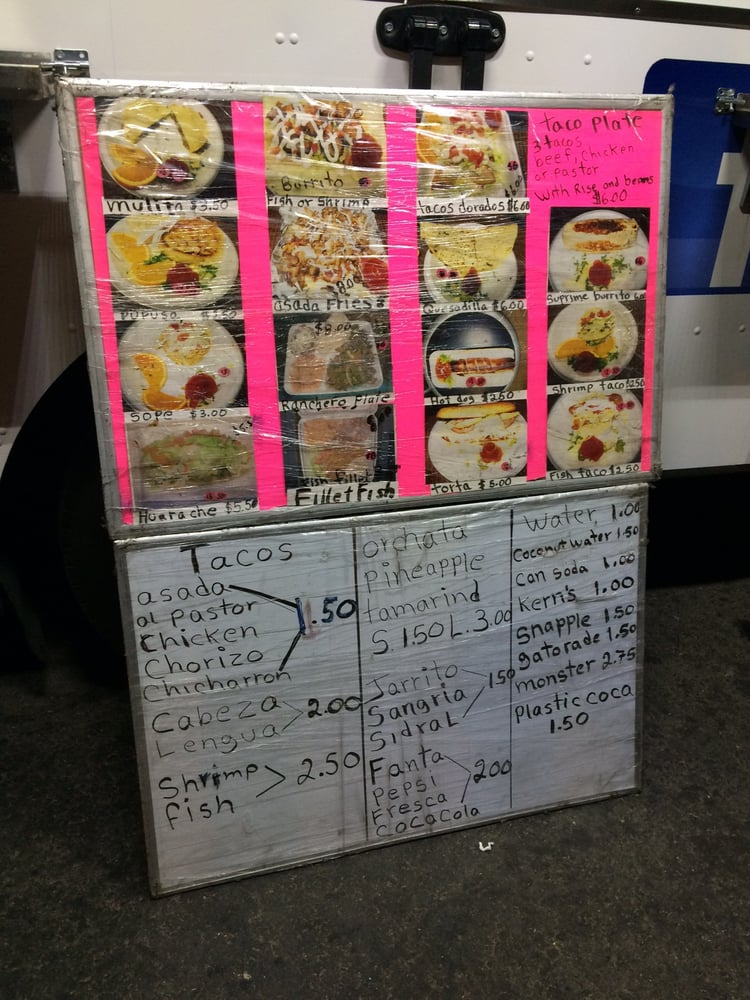 mulita $3.50
Burrito
Fish or Shrimp
tacos dorados $6.00
taco plate
3 tacos
beef, chicken
or pastor
with Rise and beans
$6.00
PUPUSA
asada Fries
8.00
Quesadilla $6.00
Suprime burrito
Sope $3.00
$8.00
Ranchero Plate
Hot dog $2.50
Shrimp taco $2.50
Huarache $5.50
Fish Fillet
Fillet Fish
torta $5.00
Fish taco $2.50
Tacos
asada
al Pastor
Chicken
Chorizo
Chicharron
1.50
Cabeza
Lengua
2.00
Shrimp
fish
2.50
orchata
pineapple
tamarind
S. 1.50 L. 3.00
Jarrito
Sangria
Sidral
1.50
Fanta
Pepsi
Fresca
CocaCola
2.00
Water, 1.00
Coconut water 1.50
can soda 1.00
Kern's 1.00
Snapple 1.50
gatorade 1.50
monster 2.75
Plastic coca
1.50